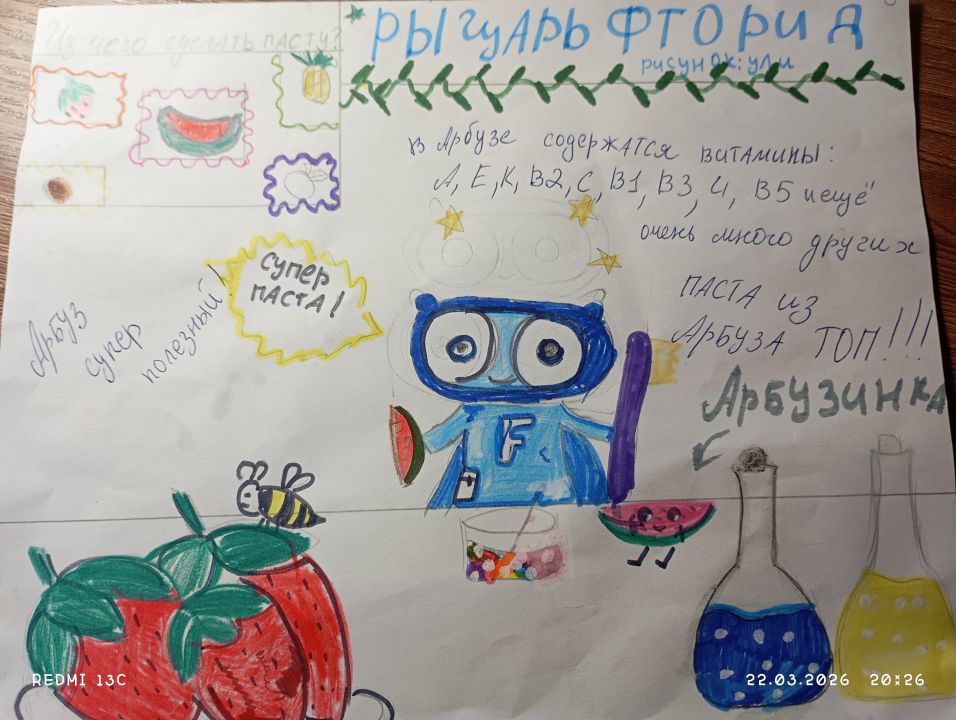 Из чего сделать пасту?
РЫЦАРЬ ФТОРИД
рисунок: ули
в Арбузе содержатся витамины:
А, Е, К, В2, С, В1, В3, 4, В5 и ещё
очень много других
паста из
Арбуза ТОП!!!
супер
паста!
Арбуз
супер
полезный!
Арбузинка
F
REDMI 13C
22.03.2026 20:26